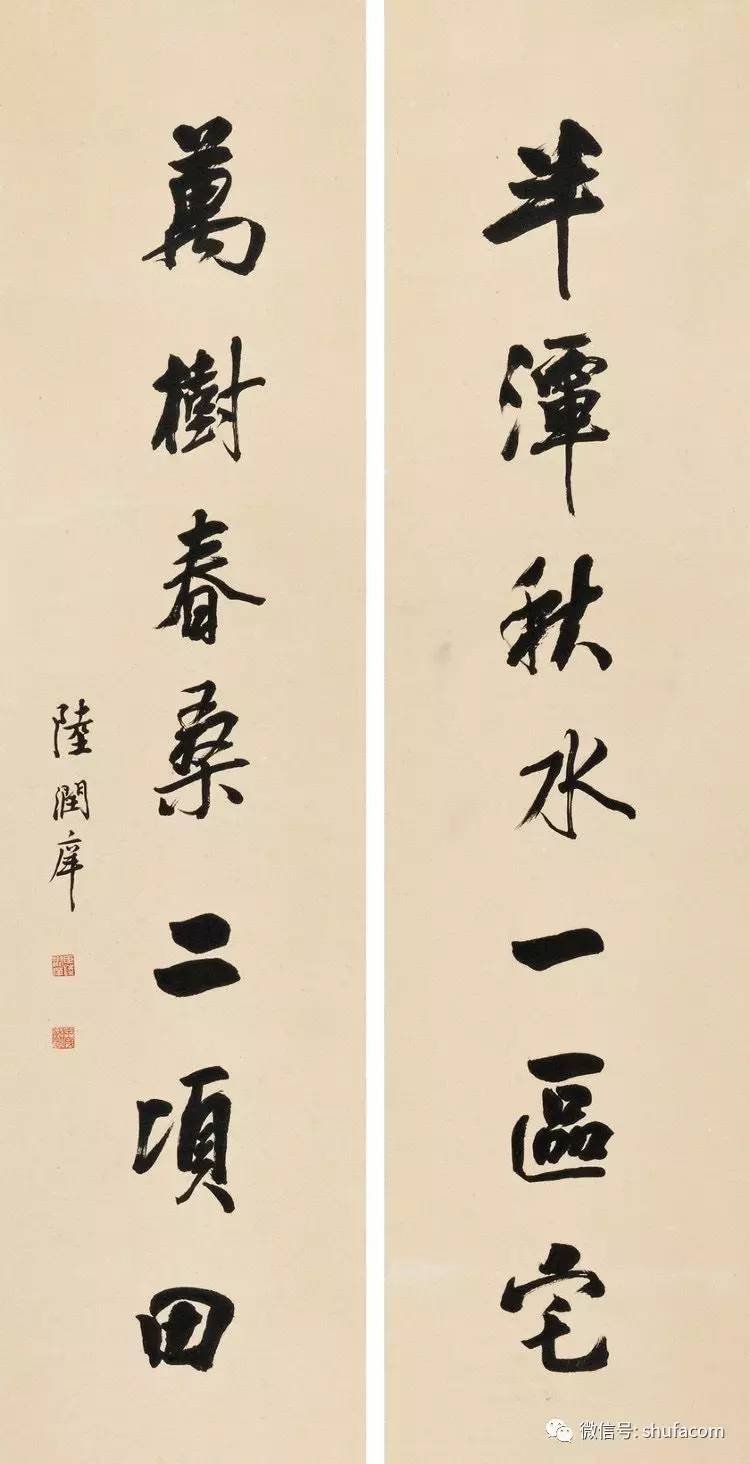 半潭秋水一區宅
萬樹春桑二頃田
陸潤庠
微信号: shufacom